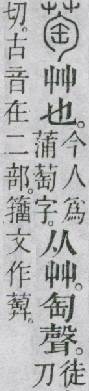 萄艸也。今人為蒲萄字。从艸。匋聲。徒刀
切。古音在二部。籒文作